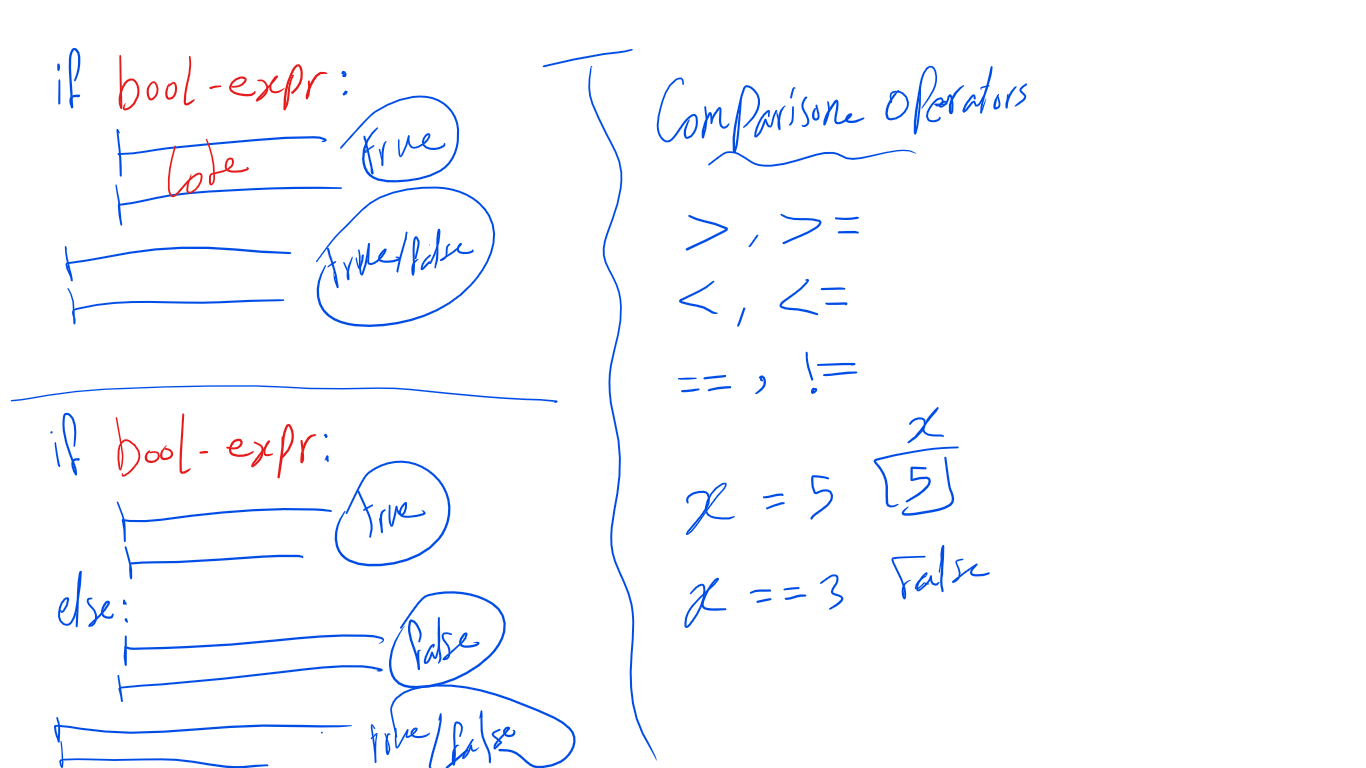 if bool-expr:
Code
true
true/false
if bool-expr:
true
else:
false
true/false
Comparisone operators
>, >=
<, <=
==, !=
x
x = 5 5
x == 3 False